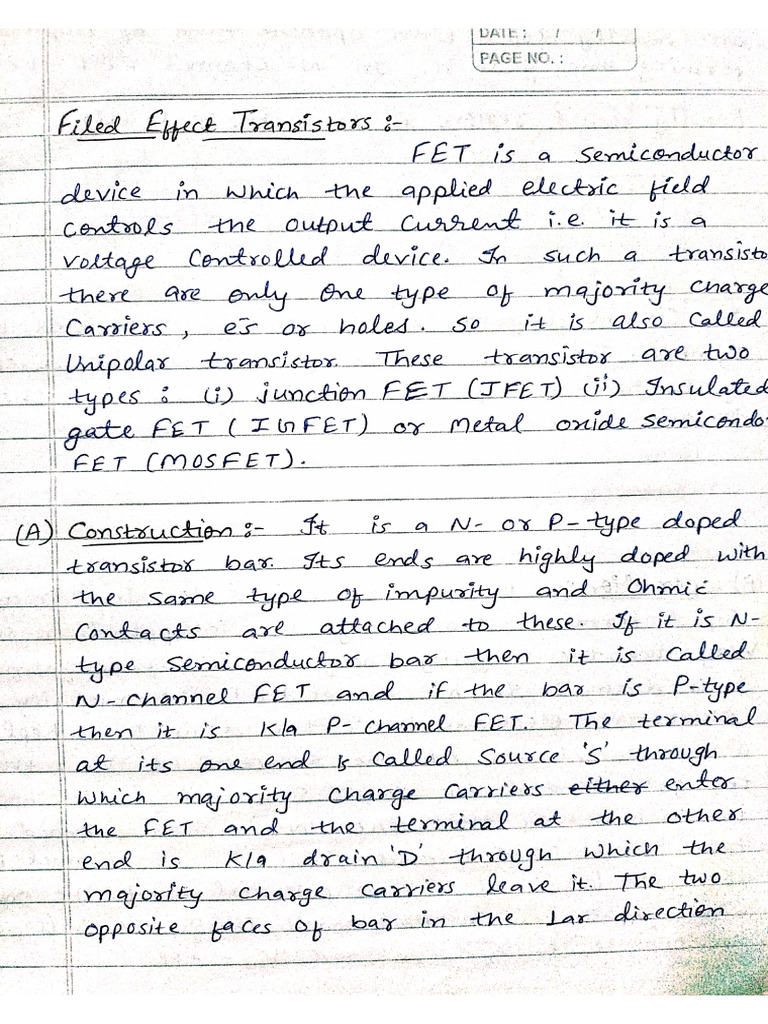 DATE: / /
PAGE NO.:
Filed Effect Transistors :-
FET is a semiconductor
device in which the applied electric field
controls the output current i.e. it is a
voltage controlled device. In such a transisto
there are only one type of majority charge
carriers, es or holes. So it is also called
Unipolar transistor. These transistor are two
types : (i) junction FET (JFET) (ii) Insulated
gate FET (IGFET) or Metal oxide semicondo
FET (MOSFET).
(A) Construction :- It is a N- or P-type doped
transistor bar. Its ends are highly doped with
the same type of impurity and Ohmic
contacts are attached to these. If it is N-
type semiconductor bar then it is called
N-channel FET and if the bar is P-type
then it is k/a P-channel FET. The terminal
at its one end is called source 'S' through
which majority charge carriers either enter
the FET and the terminal at the other
end is k/a drain 'D' through which the
majority charge carriers leave it. The two
opposite faces of bar in the Lar direction